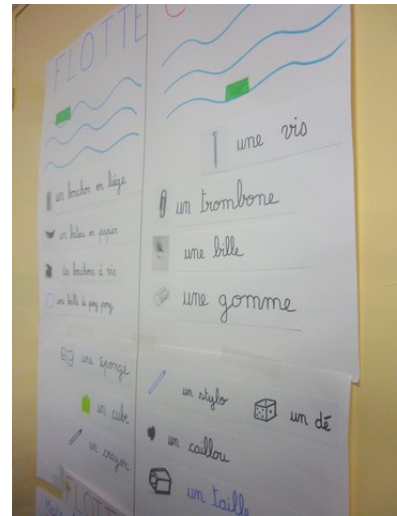 FLOTTE
C
un bouchon en liège
un bateau en papier
des bouchons à vis
une balle de ping pong
une éponge
un cube
un crayon
FLOTTE
une vis
un trombone
une bille
une gomme
un stylo
un dé
un caillou
un taille